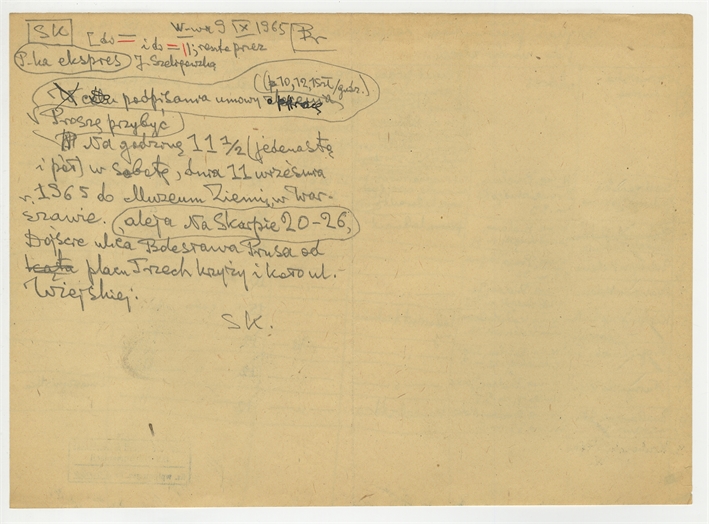 SK W-wa 9 IX 1965 Br
[do = i do = ||; rente przez
P-ka ekspres J.
(10, 12, 15 zł/godz.)
podpisania umowy
Proszę przybyć
Na godzinę 11 1/2 (jedenastą
i pół) w sobotę, dnia 11 września
r. 1965 do Muzeum Ziemi, w War-
szawie. aleja Na Skarpie 20-26,
Dojście ulicą Bolesława Prusa od
placu Trzech krzyży i koło ul.
Wiejskiej.
SK.